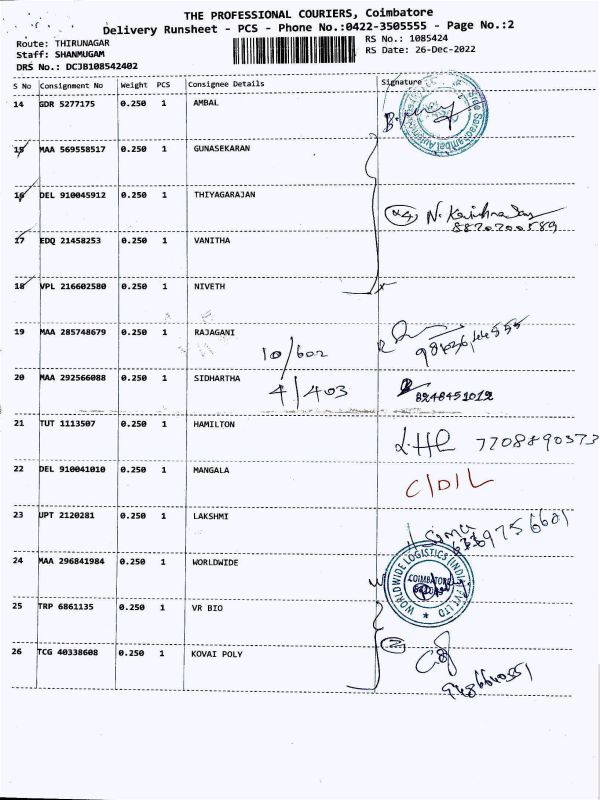 THE PROFESSIONAL COURIERS, Coimbatore
Delivery Runsheet - PCS - Phone No.:0422-3505555 - Page No.:2
Route: THIRUNAGAR
RS No.: 1085424
Staff: SHANMUGAM
RS Date: 26-Dec-2022
DRS No.: DCJB108542402
S No Consignment No Weight PCS Consignee Details Signature
14 GDR 5277175 0.250 1 AMBAL
15 MAA 569558517 0.250 1 GUNASEKARAN
16 DEL 910045912 0.250 1 THIYAGARAJAN
17 EDQ 21458253 0.250 1 VANITHA
18 VPL 216602580 0.250 1 NIVETH
19 MAA 285748679 0.250 1 RAJAGANI
10/602
20 MAA 292566088 0.250 1 SIDHARTHA
4/403 8248451012
21 TUT 1113507 0.250 1 HAMILTON
7708890373
22 DEL 910041010 0.250 1 MANGALA
C/D/L
23 UPT 2120281 0.250 1 LAKSHMI
24 MAA 296841984 0.250 1 WORLDWIDE
WORLDWIDE LOGISTICS (INDIA) PVT LTD
COIMBATORE
25 TRP 6861135 0.250 1 VR BIO
26 TCG 40338608 0.250 1 KOVAI POLY